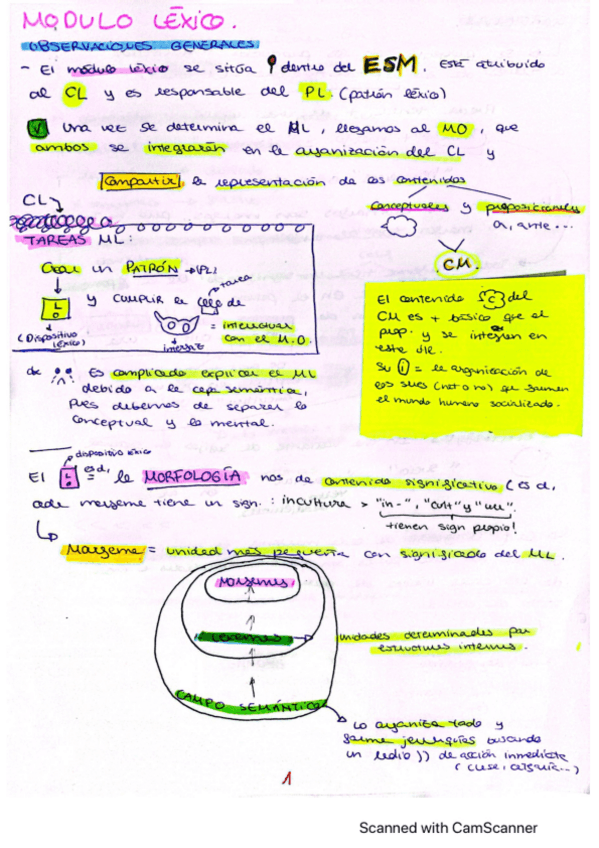 MODULO LÉXICO.
OBSERVACIONES GENERALES
- El módulo léxico se sitúa dentro del ESM. Está atribuido
al CL y es responsable del PL. (patrón léxico)
Una vez se determina el ML, llegamos al MO, que
ambos se integrarán en la organización del CL y
Compartir la representación de los contenidos
conceptuales y proposicionales
CL
TAREAS ML:
Crear un PATRÓN → (PL)
tarea
LD y cumplir la de
= interactuar
con el M.O.
(Dispositivo
léxico)
CM.
El contenido del
CM es + básico que el
prop. y se integran en
este dir.
Su = la organización de
los sues (nat o no) que forman
el mundo humano socializado.
Es complicado explicar el ML
debido a la capa semántica,
pues debemos de separar lo
conceptual y lo mental.
dispositivo léxico
El LD = la MORFOLOGÍA nos da contenido significativo (es d,
cada morfema tiene un sign. : incultura > "in-", "cult" y "ura".
tienen sign propio!
Morfema = unidad más pequeña con significado del ML.
Morfemas.
Lexemas → unidades determinadas por
estructuras internas.
CAMPO SEMÁNTICO
Lo organiza todo y
forma jerarquías buscando
un radio de acción inmediata
1
Scanned with CamScanner